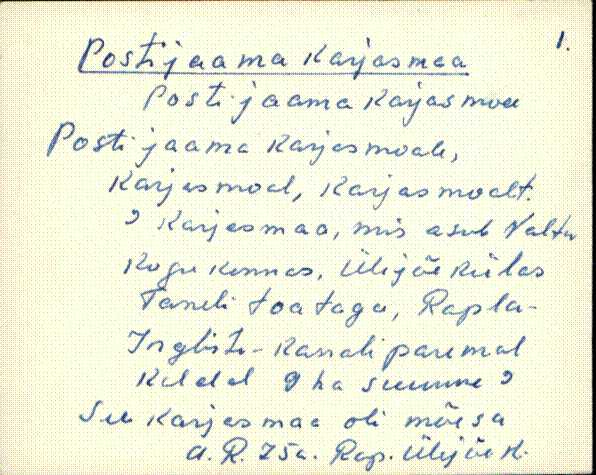 1.
Postijaama Karjasmaa
Postijaama Karjasmoa
Postijaama Karjasmoale,
Karjasmoal, Karjasmoalt.
? Karjasmaa, mis asub Valtu
Kogukonnas, Ülijõe külas
Taneli toa taga, Rapla-
Ingliste- kanali paremal
Kaldal 9 ha suurune ?
See Karjasmaa oli mõisa
A. R. 75a. Rap. Ülijõe k.